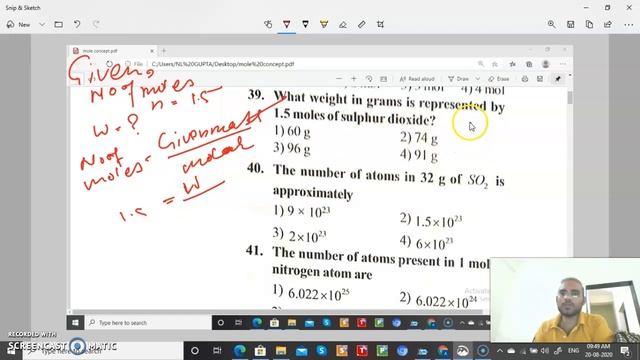 Snip & Sketch
mole concept.pdf
C:/Users/NL%20GUPTA/Desktop/mole%20concept.pdf
Given,
No of moles
n = 1.5
W = ?
No of moles = Given mass
molar
1.5 = W
4) 4 mol
39. What weight in grams is represented by
1.5 moles of sulphur dioxide?
1) 60 g 2) 74 g
3) 96 g 4) 91 g
40. The number of atoms in 32 g of SO₂ is
approximately
1) 9 × 10²³ 2) 1.5×10²³
3) 2×10²³ 4) 6×10²³
41. The number of atoms present in 1 mol
nitrogen atom are
1) 6.022×10²⁵ 2) 6.022×10²⁴
Type here to search
RECORDED WITH
SCREENCAST MATIC
Type here to search
09:49 AM
20-08-2020